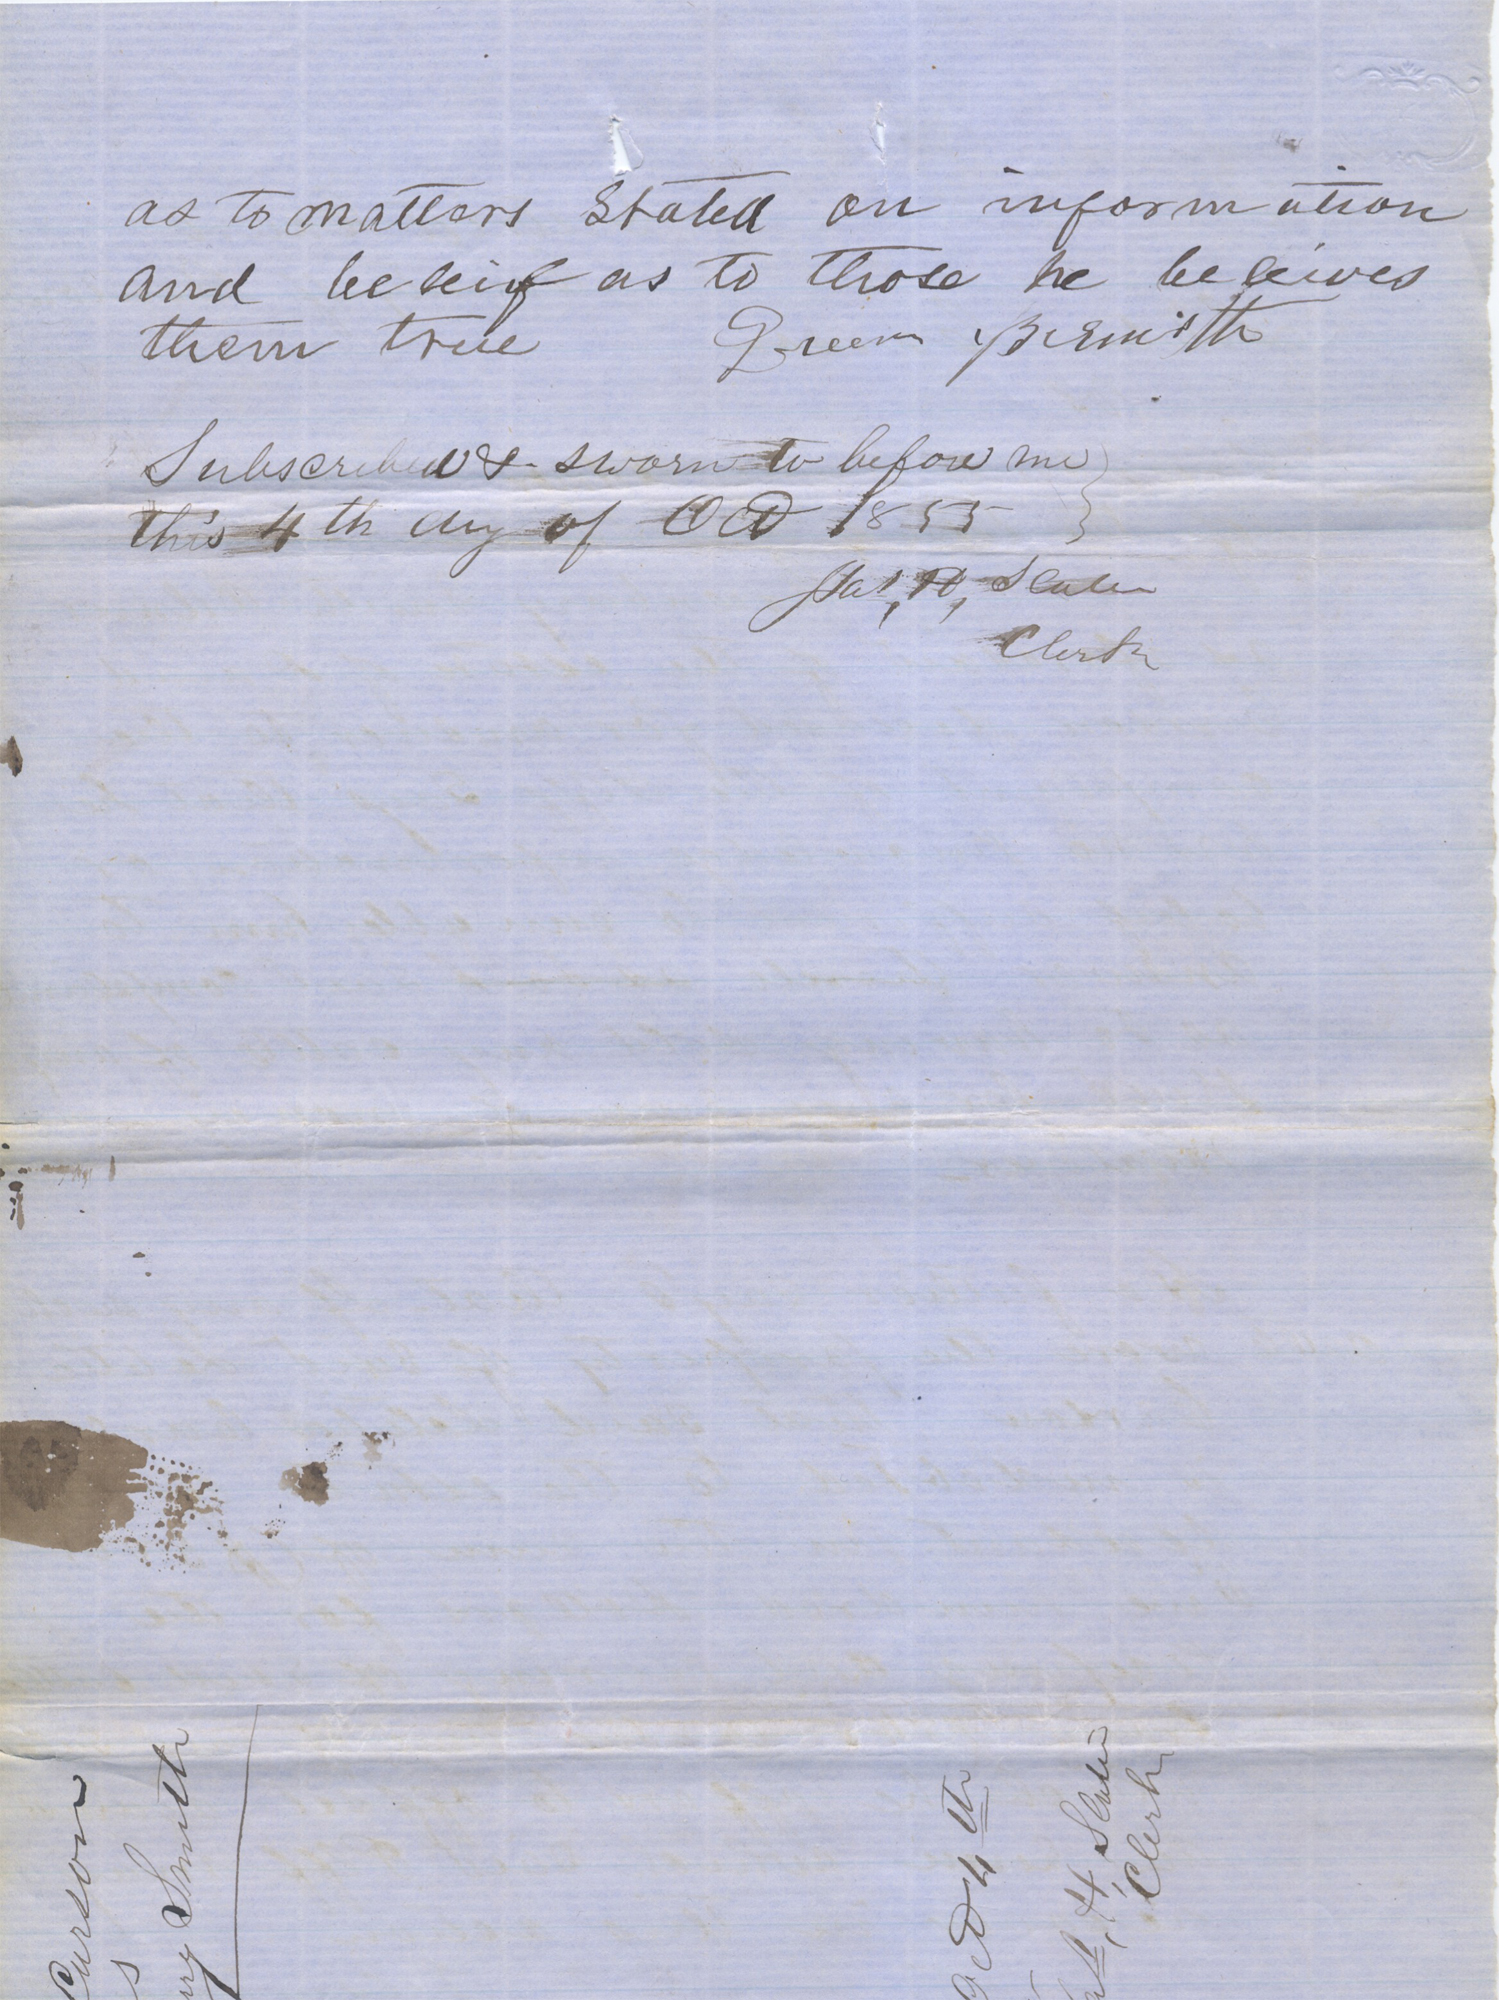 as to matters Stated on information
and beleif as to those he beleives
them true Green B Smith
Subscribed & sworn to before me
this 4th day of Oct 1855
Jas, H, Slater
Clerk
Carson
s
Smith
Oct 4th
H Slater
Clerk